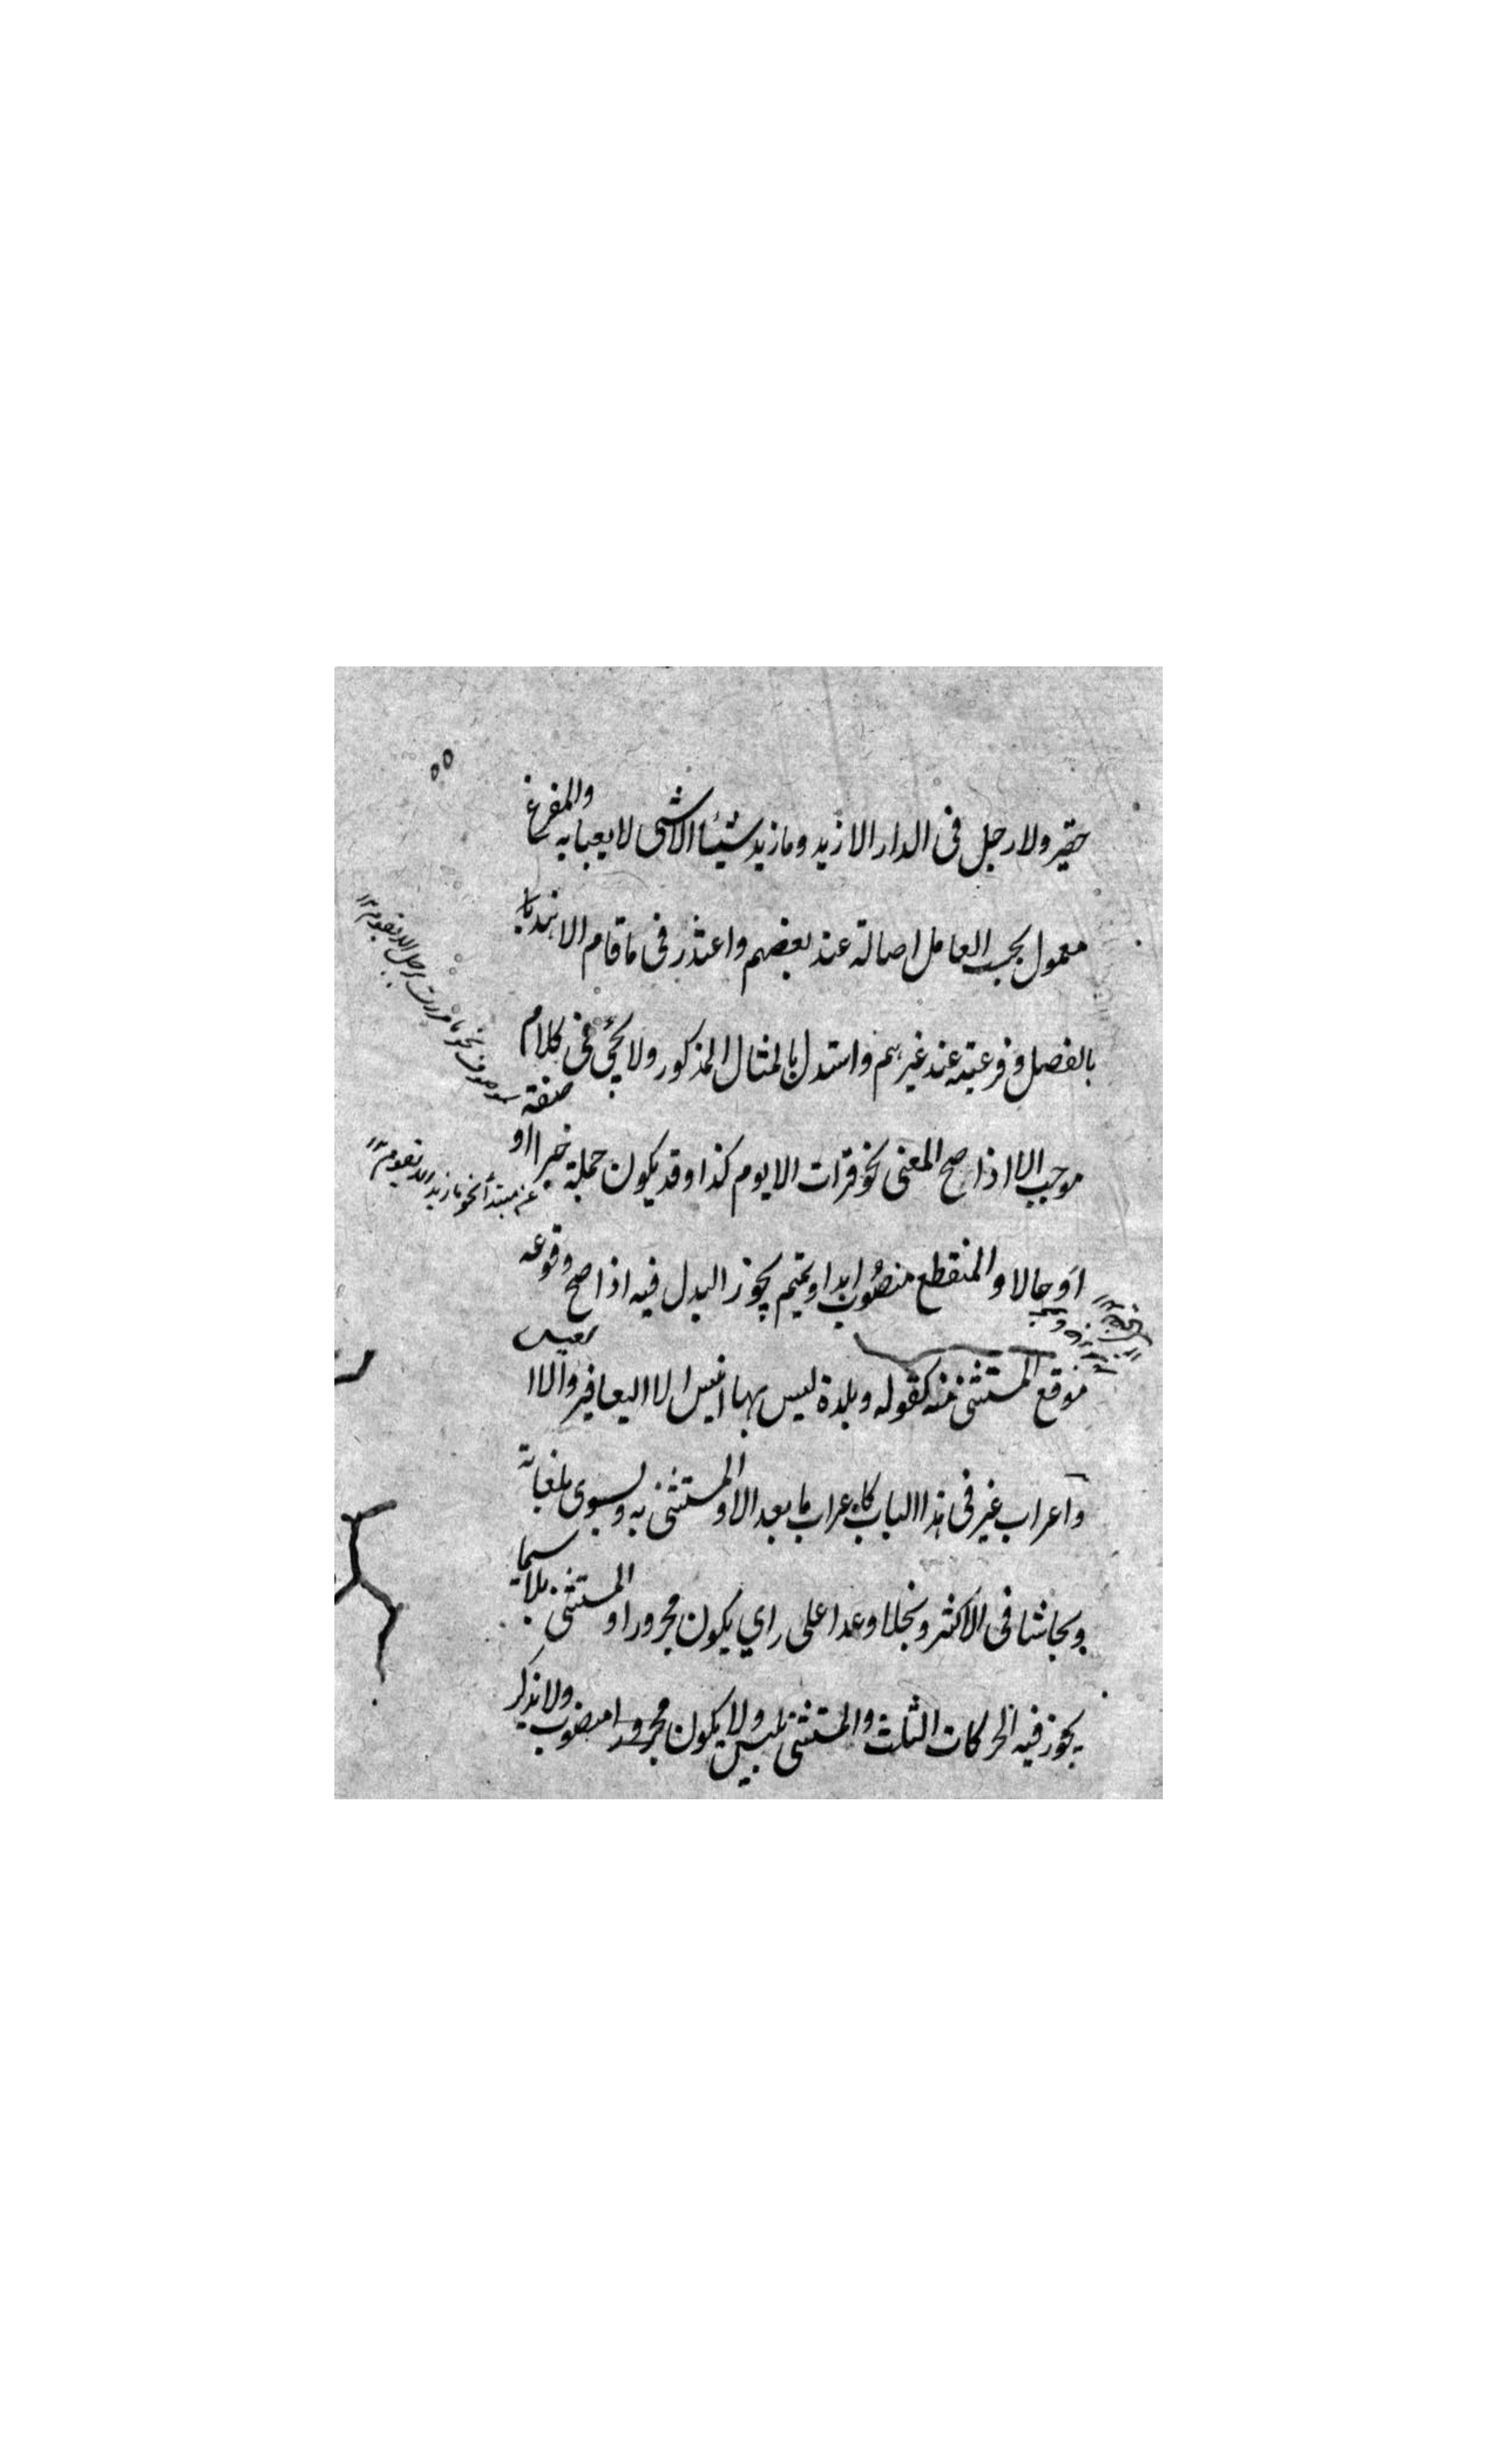 ٥٥
حقير ولا رجل فى الدار الا زيد وما زيد شيئا الا شى لا يعبا به والمفرغ
معمول بحسب العامل اصالة عند بعضهم واعتذر فى ما قام الا هند با
بالفصل وفرعيته عند غيرهم واستدل بالمثال المذكور ولا يجئ فى كلام
موجب الا اذا صح المعنى نحو قرات الا يوم كذا وقد يكون جملة خبرا او صفة
او حالا والمنقطع منصوب ابدا وتميم يجوز البدل فيه اذا صح وقوعه
موقع المستثنى منه كقوله وبلدة ليس بها انيس الا اليعافير والا العيس
واعراب غير فى هذا الباب كاعراب ما بعد الا والمستثنى به وبسوى بلغاته
وبحاشا فى الاكثر وبخلا وعدا على راي يكون مجرورا والمستثنى بلا سيما
يجوز فيه الحركات الثلث والمستثنى بليس ولا يكون منصوب ولا يذكر
موصوف نحو ما مررت برجل الا يقوم ١٢
عن مبتدأ نحو ما زيد الا يقوم ١٢